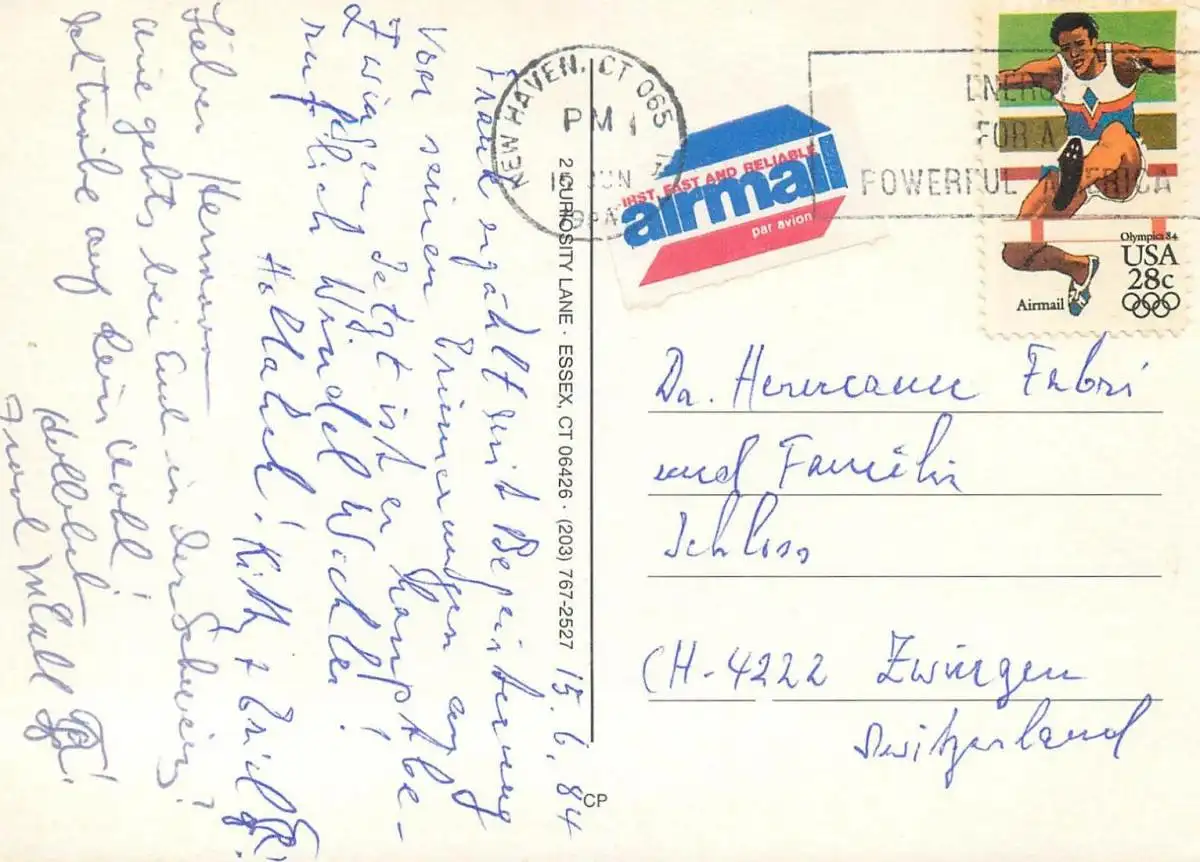 15.6.84
Frank erzählt mit Begeisterung
von seinen Erinnerungen an
Zwingen. Jetzt ist er hauptbe-
ruflich Windel Wickler!
Holladich! Kitty + Eric
Lieber Hermann
wie gehts bei Euch in der Schweiz?
Ich trinke auf Dein Wohl!
2 CURIOSITY LANE · ESSEX, CT 06426 · (203) 767-2527
CP
NEW HAVEN, CT 065
PM
JUN
FIRST, FAST AND RELIABLE
airmail
par avion
ENERGY
FOR A
POWERFUL AMERICA
Olympics 84
USA
28c
Airmail
Dr. Hermann Fabri
und Familie
Schloss
CH-4222 Zwingen
Switzerland